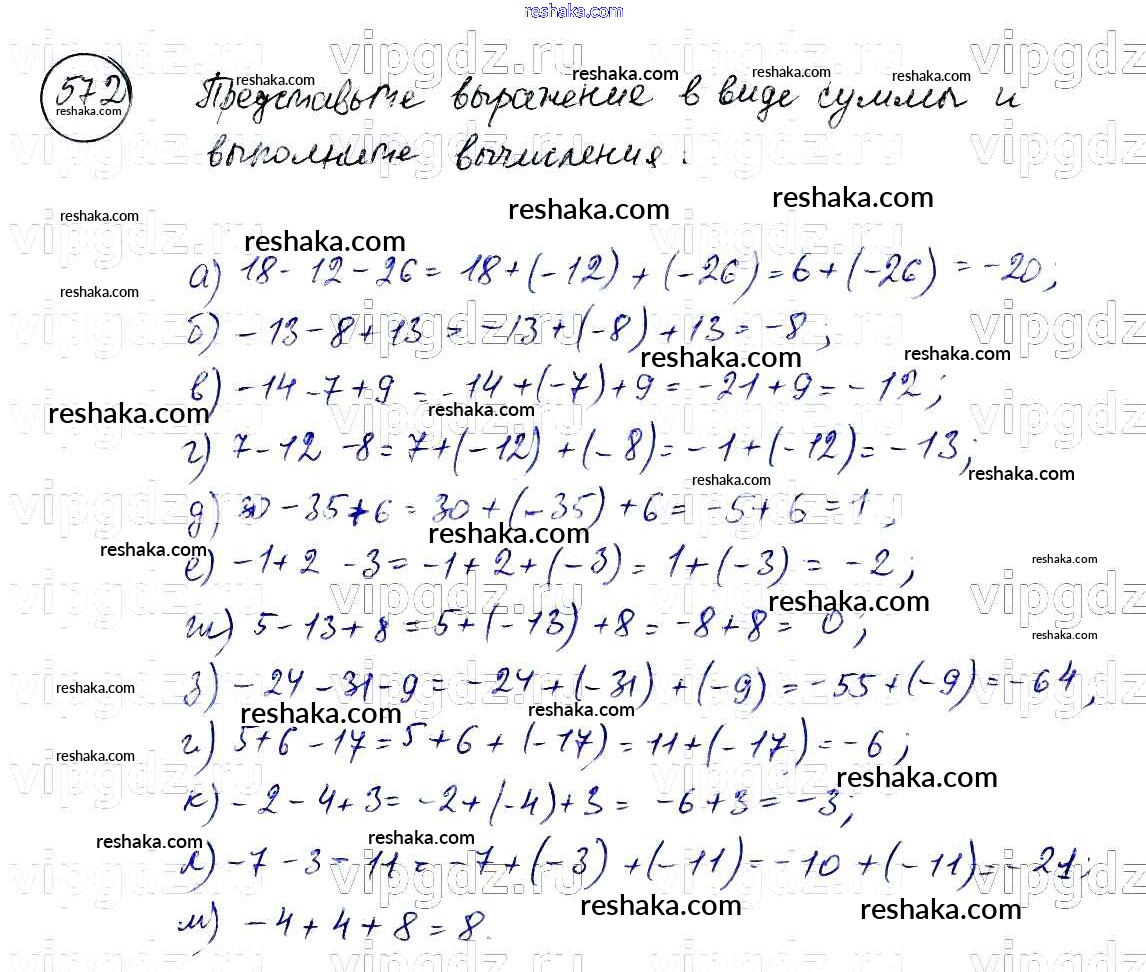 reshaka.com
572
Представьте выражение в виде суммы и
выполните вычисления:
а) 18 - 12 - 26 = 18 + (-12) + (-26) = 6 + (-26) = -20;
б) -13 - 8 + 13 = -13 + (-8) + 13 = -8;
в) -14 - 7 + 9 = -14 + (-7) + 9 = -21 + 9 = -12;
г) 7 - 12 - 8 = 7 + (-12) + (-8) = -1 + (-12) = -13;
д) 30 - 35 + 6 = 30 + (-35) + 6 = -5 + 6 = 1;
е) -1 + 2 - 3 = -1 + 2 + (-3) = 1 + (-3) = -2;
ж) 5 - 13 + 8 = 5 + (-13) + 8 = -8 + 8 = 0;
з) -24 - 31 - 9 = -24 + (-31) + (-9) = -55 + (-9) = -64,
и) 5 + 6 - 17 = 5 + 6 + (-17) = 11 + (-17) = -6;
к) -2 - 4 + 3 = -2 + (-4) + 3 = -6 + 3 = -3;
л) -7 - 3 - 11 = -7 + (-3) + (-11) = -10 + (-11) = -21;
м) -4 + 4 + 8 = 8.